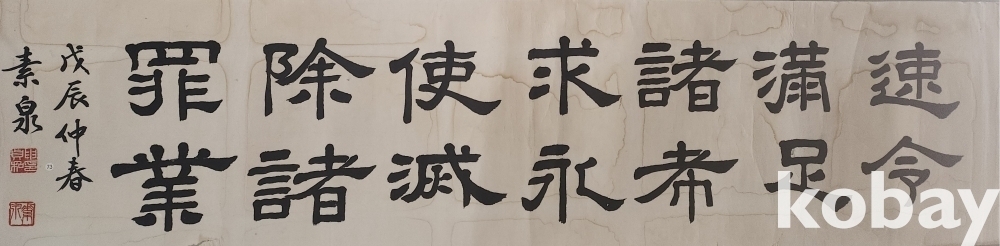 速令
滿足
諸希
求永
使滅
除諸
罪業
戊辰仲春
素泉
kobay